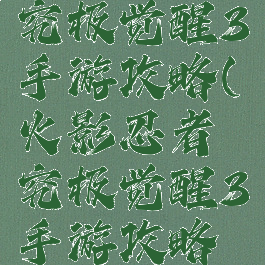 究极觉醒3
手游攻略(
火影忍者
究极觉醒3
手游攻略